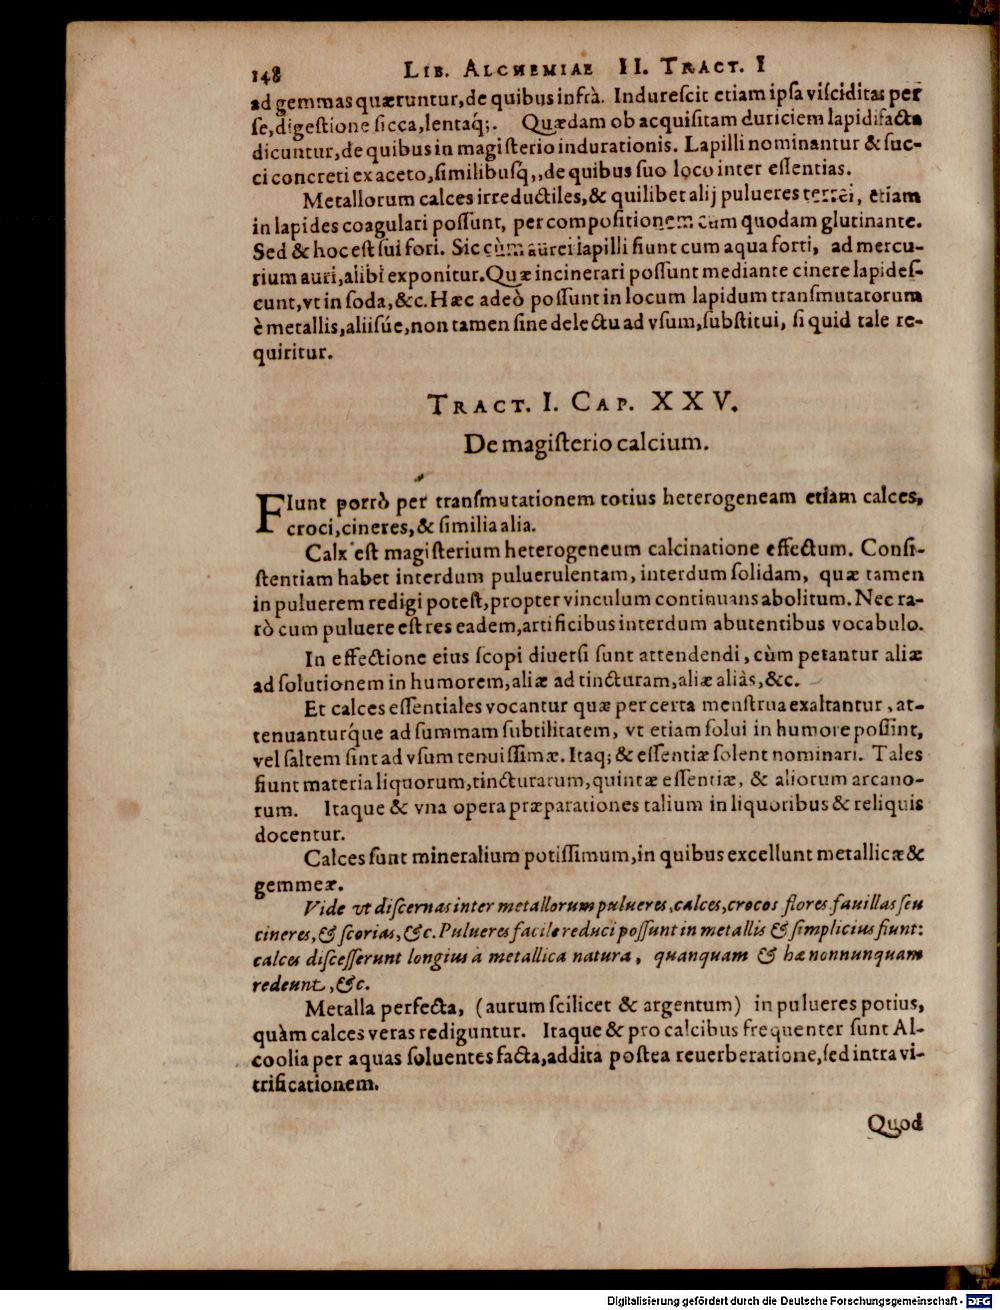 148 LIB. ALCHEMIAE II. TRACT. I
ad gemmas quæruntur, de quibus infrà. Indurescit etiam ipsa visciditas per
se, digestione sicca, lentaq́;. Quædam ob acquisitam duriciem lapidifacta
dicuntur, de quibus in magisterio indurationis. Lapilli nominantur & suc-
ci concreti ex aceto, similibusq́,, de quibus suo loco inter essentias.
Metallorum calces irreductiles, & quilibet alij pulueres terrei, etiam
in lapides coagulari possunt, per compositionem cum quodam glutinante.
Sed & hoc est sui fori. Sic cùm aurei lapilli fiunt cum aqua forti, ad mercu-
rium auri, alibi exponitur. Quæ incinerari possunt mediante cinere lapides-
cunt, vt in soda, &c. Hæc adeò possunt in locum lapidum transmutatorum
è metallis, aliisúe, non tamen sine delectu ad vsum, substitui, si quid tale re-
quiritur.
TRACT. I. CAP. XXV.
De magisterio calcium.
FIunt porrò per transmutationem totius heterogeneam etiam calces,
croci, cineres, & similia alia.
Calx est magisterium heterogeneum calcinatione effectum. Consi-
stentiam habet interdum puluerulentam, interdum solidam, quæ tamen
in puluerem redigi potest, propter vinculum continuans abolitum. Nec ra-
rò cum puluere est res eadem, artificibus interdum abutentibus vocabulo.
In effectione eius scopi diuersi sunt attendendi, cùm petantur aliæ
ad solutionem in humorem, aliæ ad tincturam, aliæ aliàs, &c.
Et calces essentiales vocantur quæ per certa menstrua exaltantur, at-
tenuanturq́ue ad summam subtilitatem, vt etiam solui in humore possint,
vel saltem sint ad vsum tenuissimæ. Itaq; & essentiæ solent nominari. Tales
fiunt materia liquorum, tincturarum, quintæ essentiæ, & aliorum arcano-
rum. Itaque & vna opera præparationes talium in liquoribus & reliquis
docentur.
Calces sunt mineralium potissimum, in quibus excellunt metallicæ &
gemmeæ.
Vide vt discernas inter metallorum pulueres, calces, crocos flores fauillas seu
cineres, & scorias, &c. Pulueres facile reduci possunt in metallis & simplicius fiunt:
calces discesserunt longius à metallica natura, quanquam & hæ nonnunquam
redeunt, &c.
Metalla perfecta, (aurum scilicet & argentum) in pulueres potius,
quàm calces veras rediguntur. Itaque & pro calcibus frequenter sunt Al-
coolia per aquas soluentes facta, addita postea reuerberatione, sed intra vi-
trificationem.
Quod
Digitalisierung gefördert durch die Deutsche Forschungsgemeinschaft - DFG